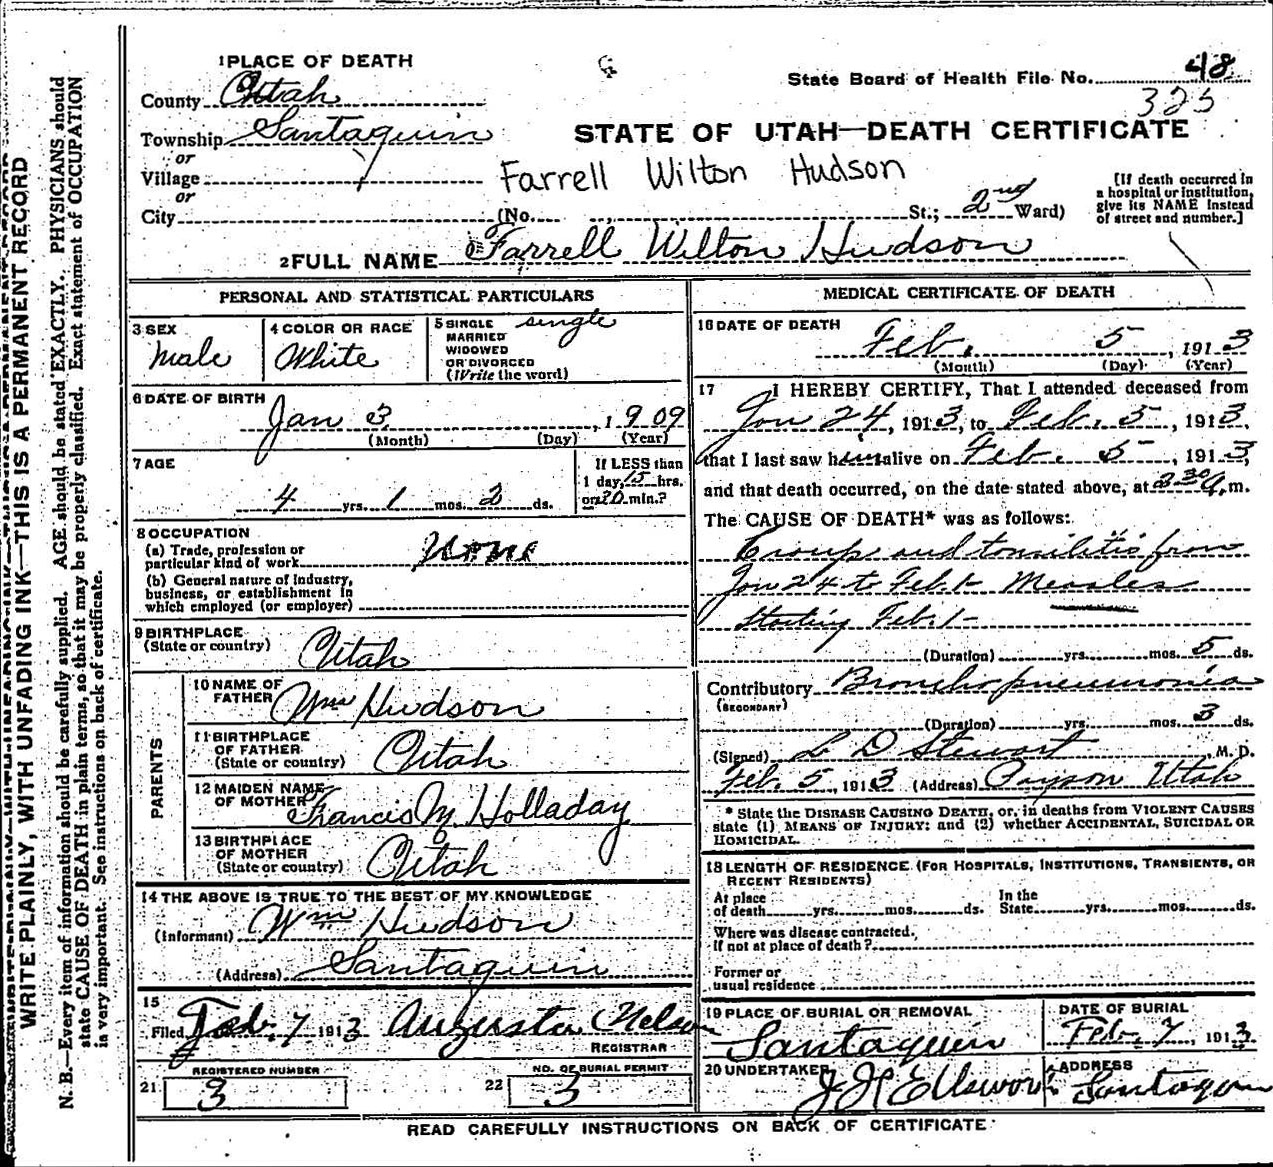 1 PLACE OF DEATH
County Utah
Township Santaquin
or
Village
or
City (No. St.; 2nd Ward)
State Board of Health File No. 48
325
STATE OF UTAH—DEATH CERTIFICATE
Farrell Wilton Hudson
[If death occurred in
a hospital or institution,
give its NAME instead
of street and number.]
2 FULL NAME Farrell Wilton Hudson
PERSONAL AND STATISTICAL PARTICULARS
3 SEX
Male
4 COLOR OR RACE
White
5 SINGLE
MARRIED
WIDOWED
OR DIVORCED
(Write the word)
single
6 DATE OF BIRTH
Jan 3, 1909
(Month) (Day) (Year)
7 AGE
4 yrs. 1 mos. 2 ds.
If LESS than
1 day, 15 hrs.
or 30 min.?
8 OCCUPATION
(a) Trade, profession or
particular kind of work None
(b) General nature of Industry,
business, or establishment in
which employed (or employer)
9 BIRTHPLACE
(State or country) Utah
PARENTS
10 NAME OF
FATHER Wm Hudson
11 BIRTHPLACE
OF FATHER
(State or country) Utah
12 MAIDEN NAME
OF MOTHER Francis M. Holladay
13 BIRTHPLACE
OF MOTHER
(State or country) Utah
14 THE ABOVE IS TRUE TO THE BEST OF MY KNOWLEDGE
(Informant) Wm Hudson
(Address) Santaquin
15
Filed Feb. 7 1913 Augusta Nelson
REGISTRAR
REGISTERED NUMBER
21 3
NO. OF BURIAL PERMIT
22 3
MEDICAL CERTIFICATE OF DEATH
16 DATE OF DEATH
Feb. 5, 1913
(Month) (Day) (Year)
17 I HEREBY CERTIFY, That I attended deceased from
Jan 24, 1913, to Feb. 5, 1913,
that I last saw him alive on Feb. 5, 1913,
and that death occurred, on the date stated above, at 3 30 a.m.
The CAUSE OF DEATH* was as follows:
Croup and tonsilitis from
Jan 24 to Feb. 1- Measles
Starting Feb. 1-
(Duration) yrs. mos. 5 ds.
Contributory Broncho pneumonia
(SECONDARY)
(Duration) yrs. mos. 3 ds.
(Signed) L D Stewart, M. D.
Feb. 5, 1913 (Address) Payson Utah
* State the DISEASE CAUSING DEATH, or, in deaths from VIOLENT CAUSES
state (1) MEANS OF INJURY: and (2) whether ACCIDENTAL, SUICIDAL OR
HOMICIDAL.
18 LENGTH OF RESIDENCE (FOR HOSPITALS, INSTITUTIONS, TRANSIENTS, OR
RECENT RESIDENTS)
At place
of death yrs. mos. ds.
In the
State yrs. mos. ds.
Where was disease contracted,
If not at place of death?
Former or
usual residence
19 PLACE OF BURIAL OR REMOVAL
Santaquin
DATE OF BURIAL
Feb. 7, 1913
20 UNDERTAKER
J H Ellsworth
ADDRESS
Santaquin
READ CAREFULLY INSTRUCTIONS ON BACK OF CERTIFICATE
WRITE PLAINLY, WITH UNFADING INK—THIS IS A PERMANENT RECORD
N. B.—Every item of information should be carefully supplied. AGE should be stated EXACTLY. PHYSICIANS should
state CAUSE OF DEATH in plain terms, so that it may be properly classified. Exact statement of OCCUPATION
is very important. See instructions on back of certificate.